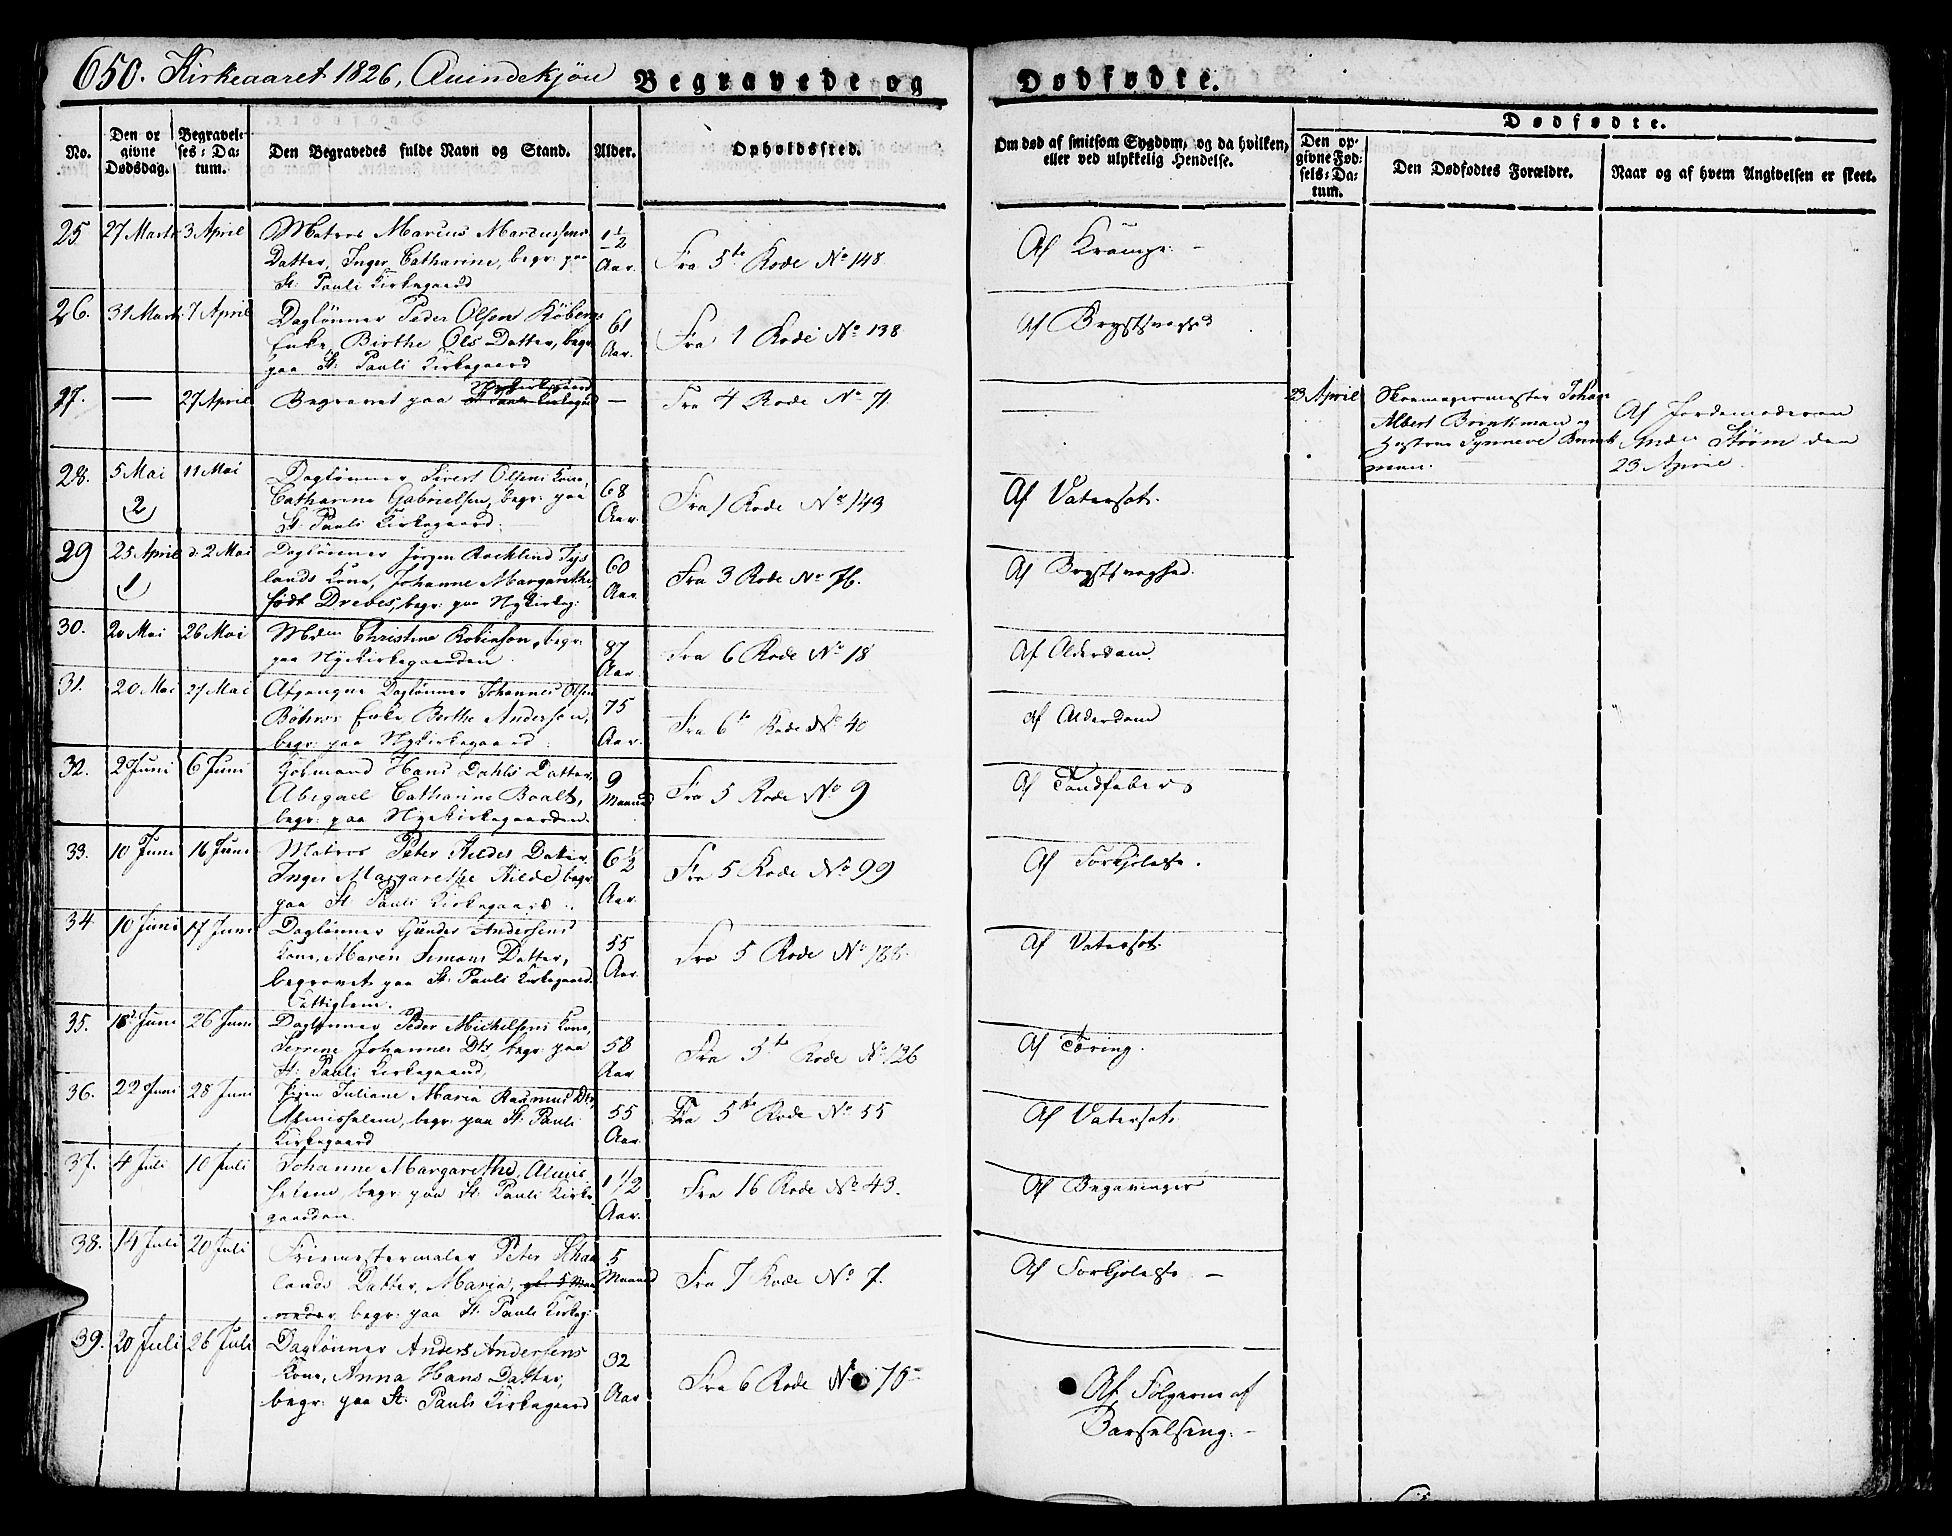 650. Kirkeaaret 1826, Qvindekjøn
Begravede og
Dødfødte.
No.
Den opgivne Dødsdag.
Begravelses-Datum.
Den Begravedes fulde Navn og Stand.
Alder.
Opholdssted.
Om død af smitsom Sygdom, og da hvilken, eller ved ulykkelig Hendelse.
Dødfødte.
Den opgivne Fødsels-Datum.
Den Dødfødtes Forældre.
Naar og af hvem Angivelsen er skeet.
25 27 Marts 3 April Matros Marcus Marcussens 1 1/2
Datter, Inger Catharine, begr: paa Aar. Fra 5te Rode No 148 Af Krampe. –
St: Pauli Kirkegaard
26. 31 Marts 7 April Daglønner Peder Olsen 61
Enke, Birthe Ols Datter, begr. Aar. Fra 1 Rode No 138 Af Brystsvaghed
paa St. Pauli Kirkegaard
27. — 27 April Begravet paa Nykirkegaard — Fra 4 Rode No 71
23 April Skomagermester Johan
Albert Brinkman og
Hustrue Synneve Brink
man.
Af Jordemoderen
Strøm den
23 April.
28. 5 Mai 11 Mai Daglønner Sivert Olsens Kone,
2 Catharina Gabrielsen, begr: paa 68 Aar. Fra 1 Rode No 143 Af Vatersot.
St. Pauli Kirkegaard.
29 25 April d. 2 Mai Daglønner Jørgen Tys
1 lands Kone, Johanne Margarethe, 60 Aar Fra 3 Rode No 76. Af Brystsvaghed.
født Dreves, begr: paa Nykirkeg:
30. 20 Mai 26 Mai Mdm Christine Robinson, begr: 87
paa Nyekirkegaarden. Aar. Fra 6 Rode No 18 Af Alderdom.
31. 20 Mai 27 Mai Afgangne Daglønner Johannes Olsen
Enke Berthe Andersen, 75 Fra 6te Rode No 40 Af Alderdom
begr: paa Nykirkegaard. Aar.
32. 2 Juni 6 Juni Kjøbmand Hans Dahls Datter, 9
Abigael Catharine Boalt, Maaned Fra 5 Rode No 9 Af Tandfeber
begr: paa Nyekirkegaarden.
33. 10 Juni 16 Juni Matros Peter Hildes Datter, 6 1/2
Inger Margarethe Hilde, begr Aar. Fra 5 Rode No 99 Af Forkjølelse.
paa St Pauli Kirkegaard.
34 10 Juni 17 Juni Daglønner Gunder Andersens
Kone, Maren Simons Datter, 55
begravet paa St. Pauli Kirkegaard Aar. Fra 5 Rode Af Vatersot.
Fattiglem.
35. Juni 26 Juni Daglønner Peder Michelsens Kone,
Johannes Dtr, begr: paa 58 Aar Fra 5te Rode No 126 Af Tæring.
St. Pauli Kirkegaard
36. 22 Juni 28 Juni Pigen Juliane Maria Rasmus Dtr,
Almisselem, begr: paa St. Pauli 55 Aar. Fra 5te Rode No 55 Af Vatersot.
Kirkegaard
37. 4 Juli 10 Juli Johanne Margarethe, Almis
selem, begr: paa St Pauli Kirke 1 1/2 Aar. Fra 16 Rode No 43. Af
gaarden.
38. 14 Juli 20 Juli Friemestermaler Peter 5
Datter, Maria, gl. 5 Maa Maaned Fra 7 Rode No 7. Af Forkjølelse –
neder begr: paa St. Pauli Kirkeg:
39. 20 Juli 26 Juli Daglønner Anders Andersens 32
Kone, Anna Hans Datter, Aar Fra 6 Rode No Af Følgerne af
begr: paa St: Pauli Kirkegaard Barselseng. –